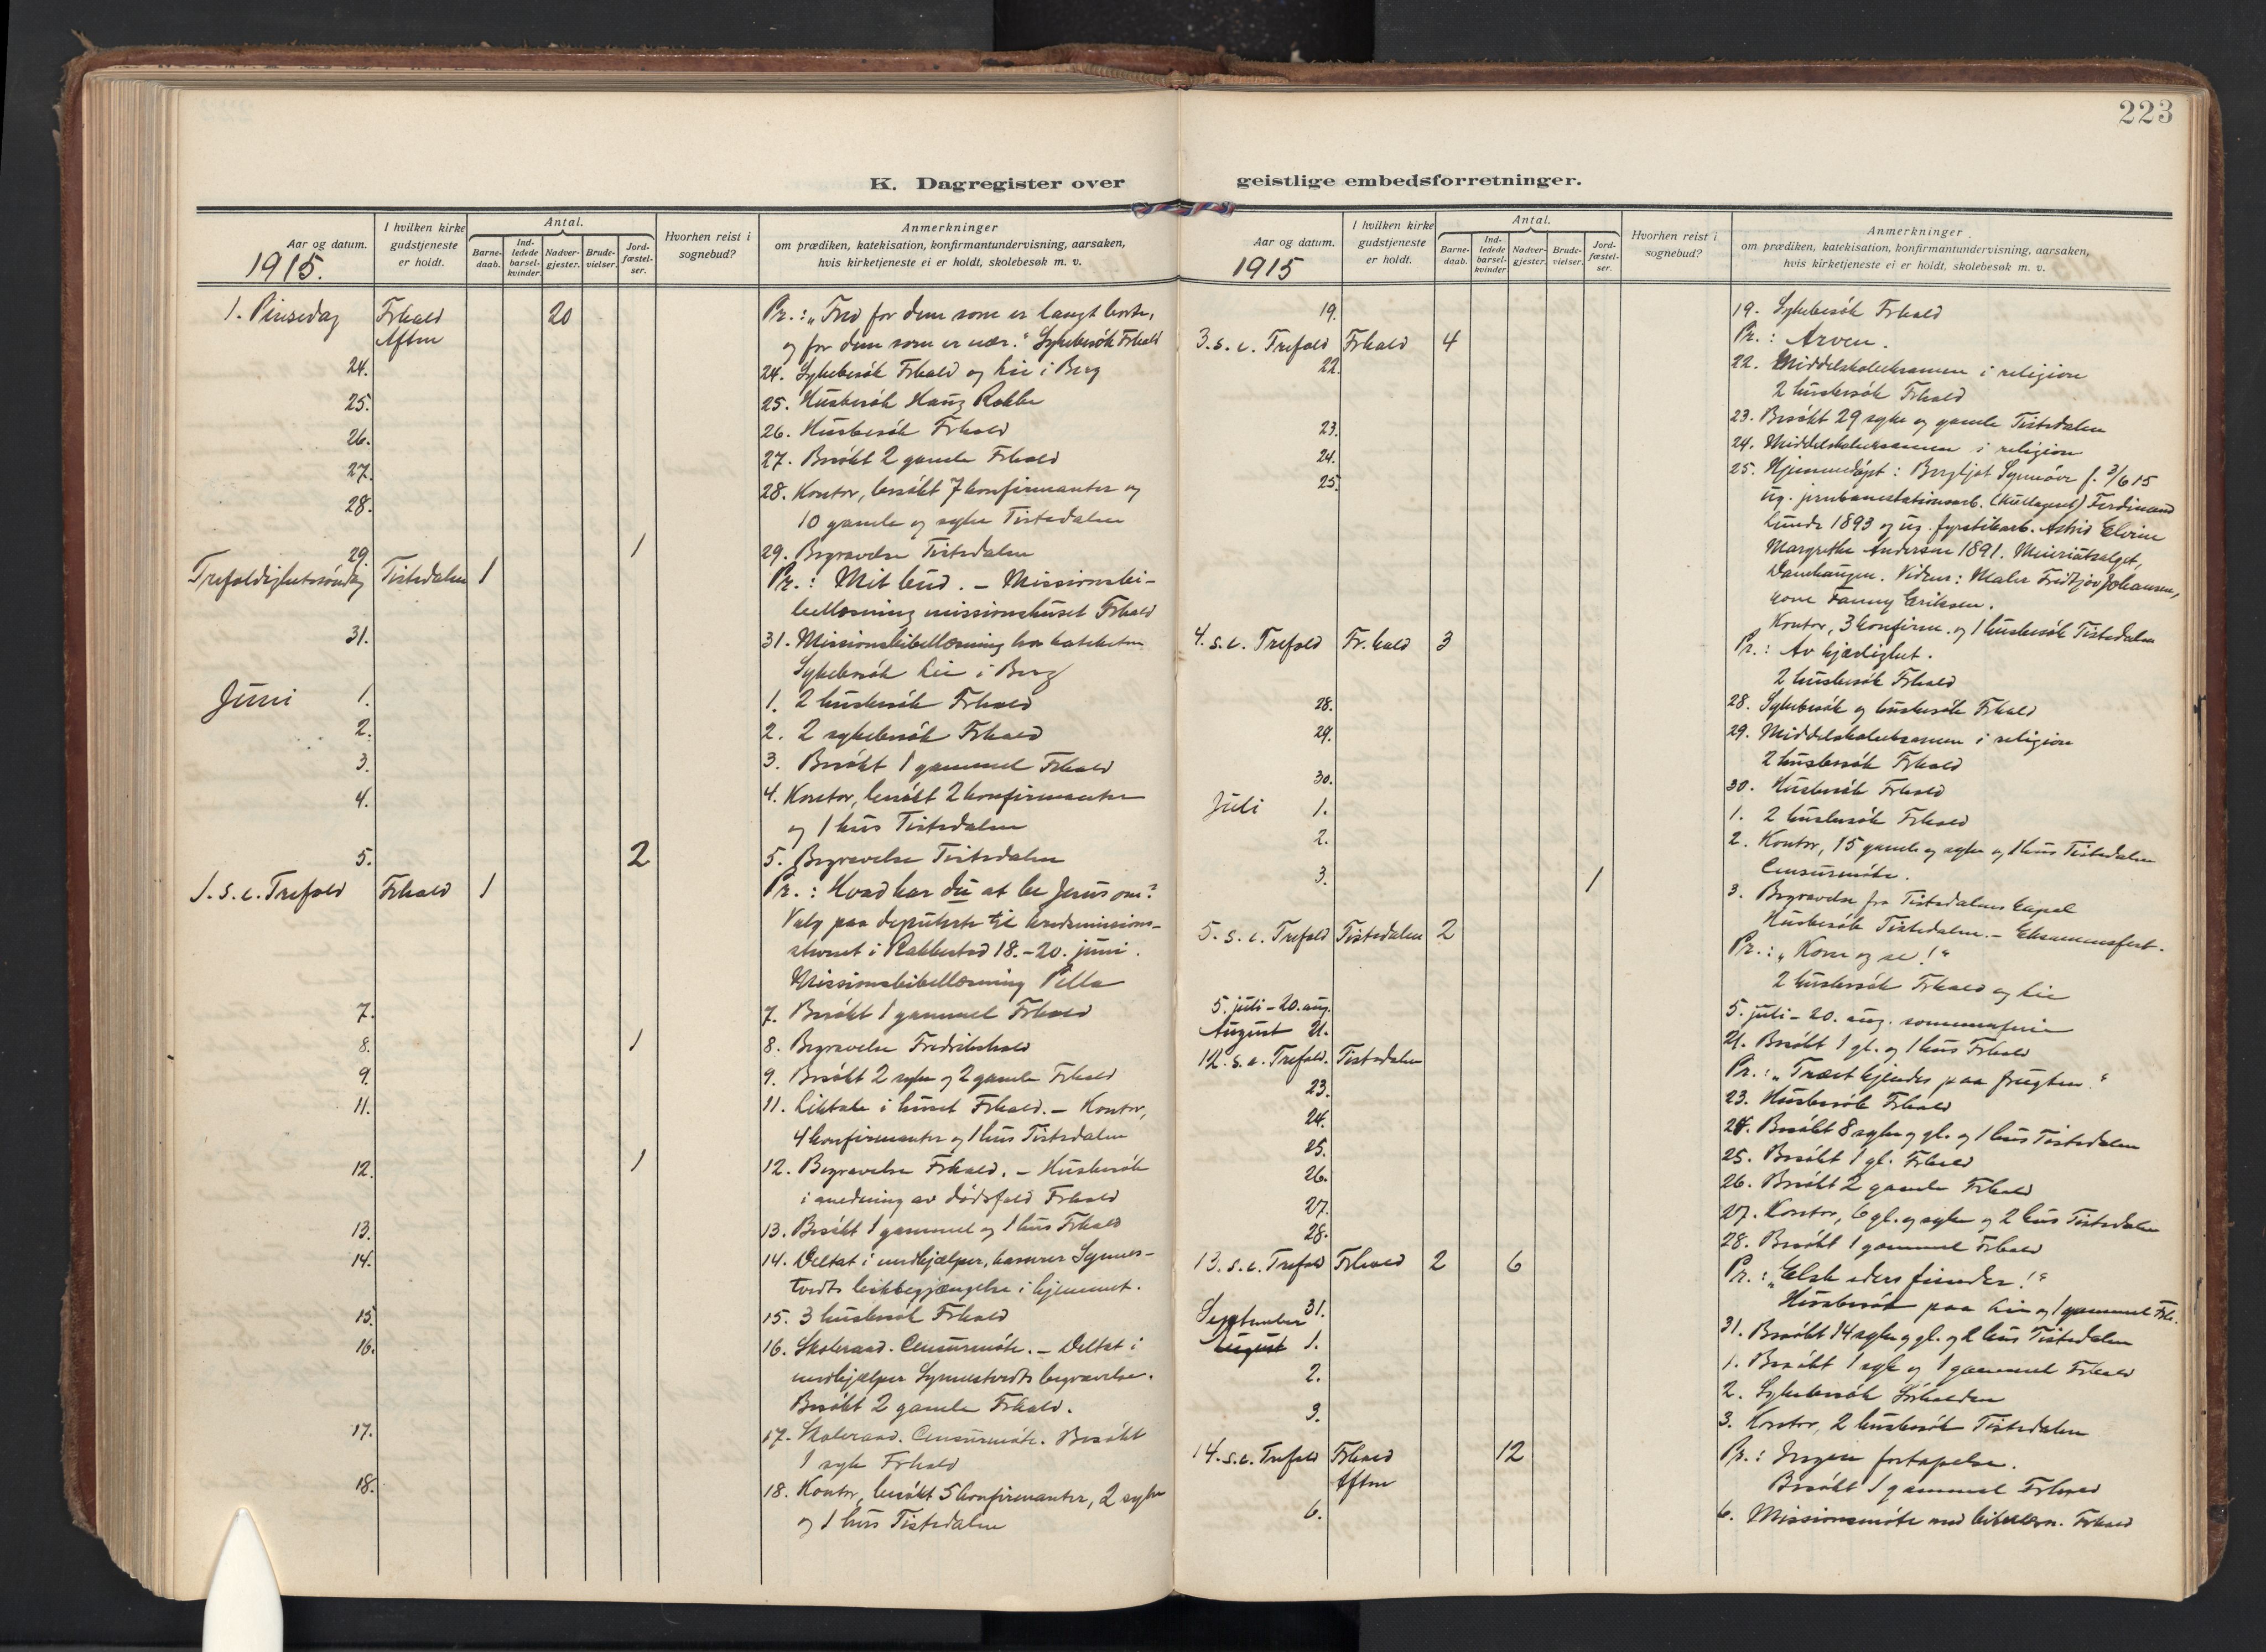 223
K. Dagregister over
Aar og datum.
1915.
I hvilken kirke
gudstjeneste
er holdt.
Antal.
Barne-
daab.
Ind-
ledede
barsel-
kvinder.
Nadver-
gjester.
Brude-
vielser.
Jord-
fæstel-
ser.
Hvorhen reist i
sognebud?
Anmerkninger
om prædiken, katekisation, konfirmantundervisning, aarsaken,
hvis kirketjeneste ei er holdt, skolebesøk m. v.
1. Pinsedag Frhald 20 Pr.: "Fred for dem som er langt borte,
Aften og for dem som er nær." Sykebesök Frhald
24. 24. Sykebesök Frhald og her i Berg
25. 25. Husbesök Haug Rokke
26. 26. Husbesök Frhald
27. 27. Besökt 2 gamle Frhald
28. 28. Kontor, besökt 7 konfirmanter og
10 gamle og syke Tistedalen
29. 1 29. Begravelse Tistedalen
Trefoldighetssöndag Tistedalen 1 Pr.: Mit bud. - Missionsbi-
bellæsning missionshuset Frhald
31. 31. Missionsbibellæsning hos kateketen
Sykebesök her i Berg
Juni 1. 1. 2 husbesök Frhald
2. 2. 2 sykebesök Frhald
3. 3. Besökt 1 gammel Frhald
4. 4. Kontor, besökt 2 konfirmanter
og 1 hus Tistedalen
5. 2 5. Begravelse Tistedalen
1. s. e. Trefold Frhald 1 Pr.: Hvad har du at be Jesus om?
Valg paa deputerte til kredsmissions-
stevnet i Rakkestad 18.-20. juni.
Missionsbibellæsning Pella
7. 7. Besökt 1 gammel Frhald
8. 1 8. Begravelse Fredrikshald
9. 9. Besökt 2 syke og 2 gamle Frhald
11. 11. Liktale i huset Frhald. - Kontor,
4 konfirmanter og 1 hus Tistedalen
12. 1 12. Begravelse Frhald. - Husbesök
i anledning av dödsfald Frhald
13. 13. Besökt 1 gammel og 1 hus Frhald
14. 14. Deltat i medhjælper, kasserer Symes-
tvedts likbegjængelse i hjemmet.
15. 15. 3 husbesök Frhald
16. 16. Skoleraad. Censurmöte. - Deltat i
medhjælper Symestvedts begravelse.
Besökt 2 gamle Frhald.
17. 17. Skoleraad. Censurmöte. Besökt
1 syk Frhald
18. 18. Kontor, besökt 5 konfirmanter, 2 syke
og 1 hus Tistedalen
geistlige embedsforretninger.
Aar og datum.
1915
I hvilken kirke
gudstjeneste
er holdt.
Antal.
Barne-
daab.
Ind-
ledede
barsel-
kvinder
Nadver-
gjester.
Brude-
vielser.
Jord-
fæstel-
ser.
Hvorhen reist i
sognebud?
Anmerkninger
om prædiken, katekisation, konfirmantundervisning, aarsaken,
hvis kirketjeneste ei er holdt, skolebesøk m. v.
19. 19. Sykebesök Frhald
3. s. e. Trefold Frhald 4 Pr.: Arven.
22. 22. Middelskoleeksamen i religion
2 husbesök Frhald
23. 23. Besökt 29 syke og gamle Tistedalen
24. 24. Middelskoleeksamen i religion
25. 25. Hjemmedöpt: Bergljot Synnöve f. 3/6 15
ug. jernbanestationsarb. Ferdinand
Lunde 1893 og ug. fyrstikarb. Astrid Elvine
Margrethe Andersen 1891. Meieriutsalget,
Damhaugen. Vidner: Maler Fridtjov Johansen,
kone Fanny Eriksen.
Kontor, 3 konfirm. og 1 husbesök Tistedalen
4. s. e. Trefold Fr.hald 3 Pr.: Av kjærlighet.
2 husbesök Frhald
28. 28. Sykebesök og husbesök Frhald
29. 29. Middelskoleeksamen i religion
2 husbesök Frhald
30. 30. Husbesök Frhald
Juli 1. 1. 2 husbesök Frhald
2. 2. Kontor, 15 gamle og syke og 1 hus Tistedalen
Censurmöte.
3. 1 3. Begravelse fra Tistedalens kapel
Husbesök Tistedalen. - Eksamensfest.
5. s. e. Trefold Tistedalen 2 Pr.: "Kom og se!"
2 husbesök Frhald og her
5. juli - 20. aug. 5. juli - 20. aug. sommerferie
August 21. 21. Besökt 1 gl. og 1 hus Frhald
12. s. e. Trefold. Tistedalen Pr.: "Træet kjendes paa frugten."
23. 23. Husbesök Frhald
24. 24. Besökt 8 syke og gl. og 1 hus Tistedalen
25. 25. Besökt 1 gl. Frhald
26. 26. Besökt 2 gamle Frhald
27. 27. Kontor, 6 gl. og syke og 2 hus Tistedalen
28. 28. Besökt 1 gammel Frhald
13. s. e. Trefold Frhald 2 6 Pr.: "Elsk eders fiender!"
Husbesök paa her og 1 gammel Frh.
31. 31. Besökt 14 syke og gl. og 2 hus Tistedalen
September
August 1. 1. Besökt 1 syk og 1 gammel Frhald
2. 2. Sykebesök
3. 3. Kontor, 2 husbesök Tistedalen
14. s. e. Trefold Frhald 12 Pr.: Ingen fortapelse.
Aften Besökt 1 gammel Frhald
6. 6. Missionsmöte med bibellæsn. Frhald